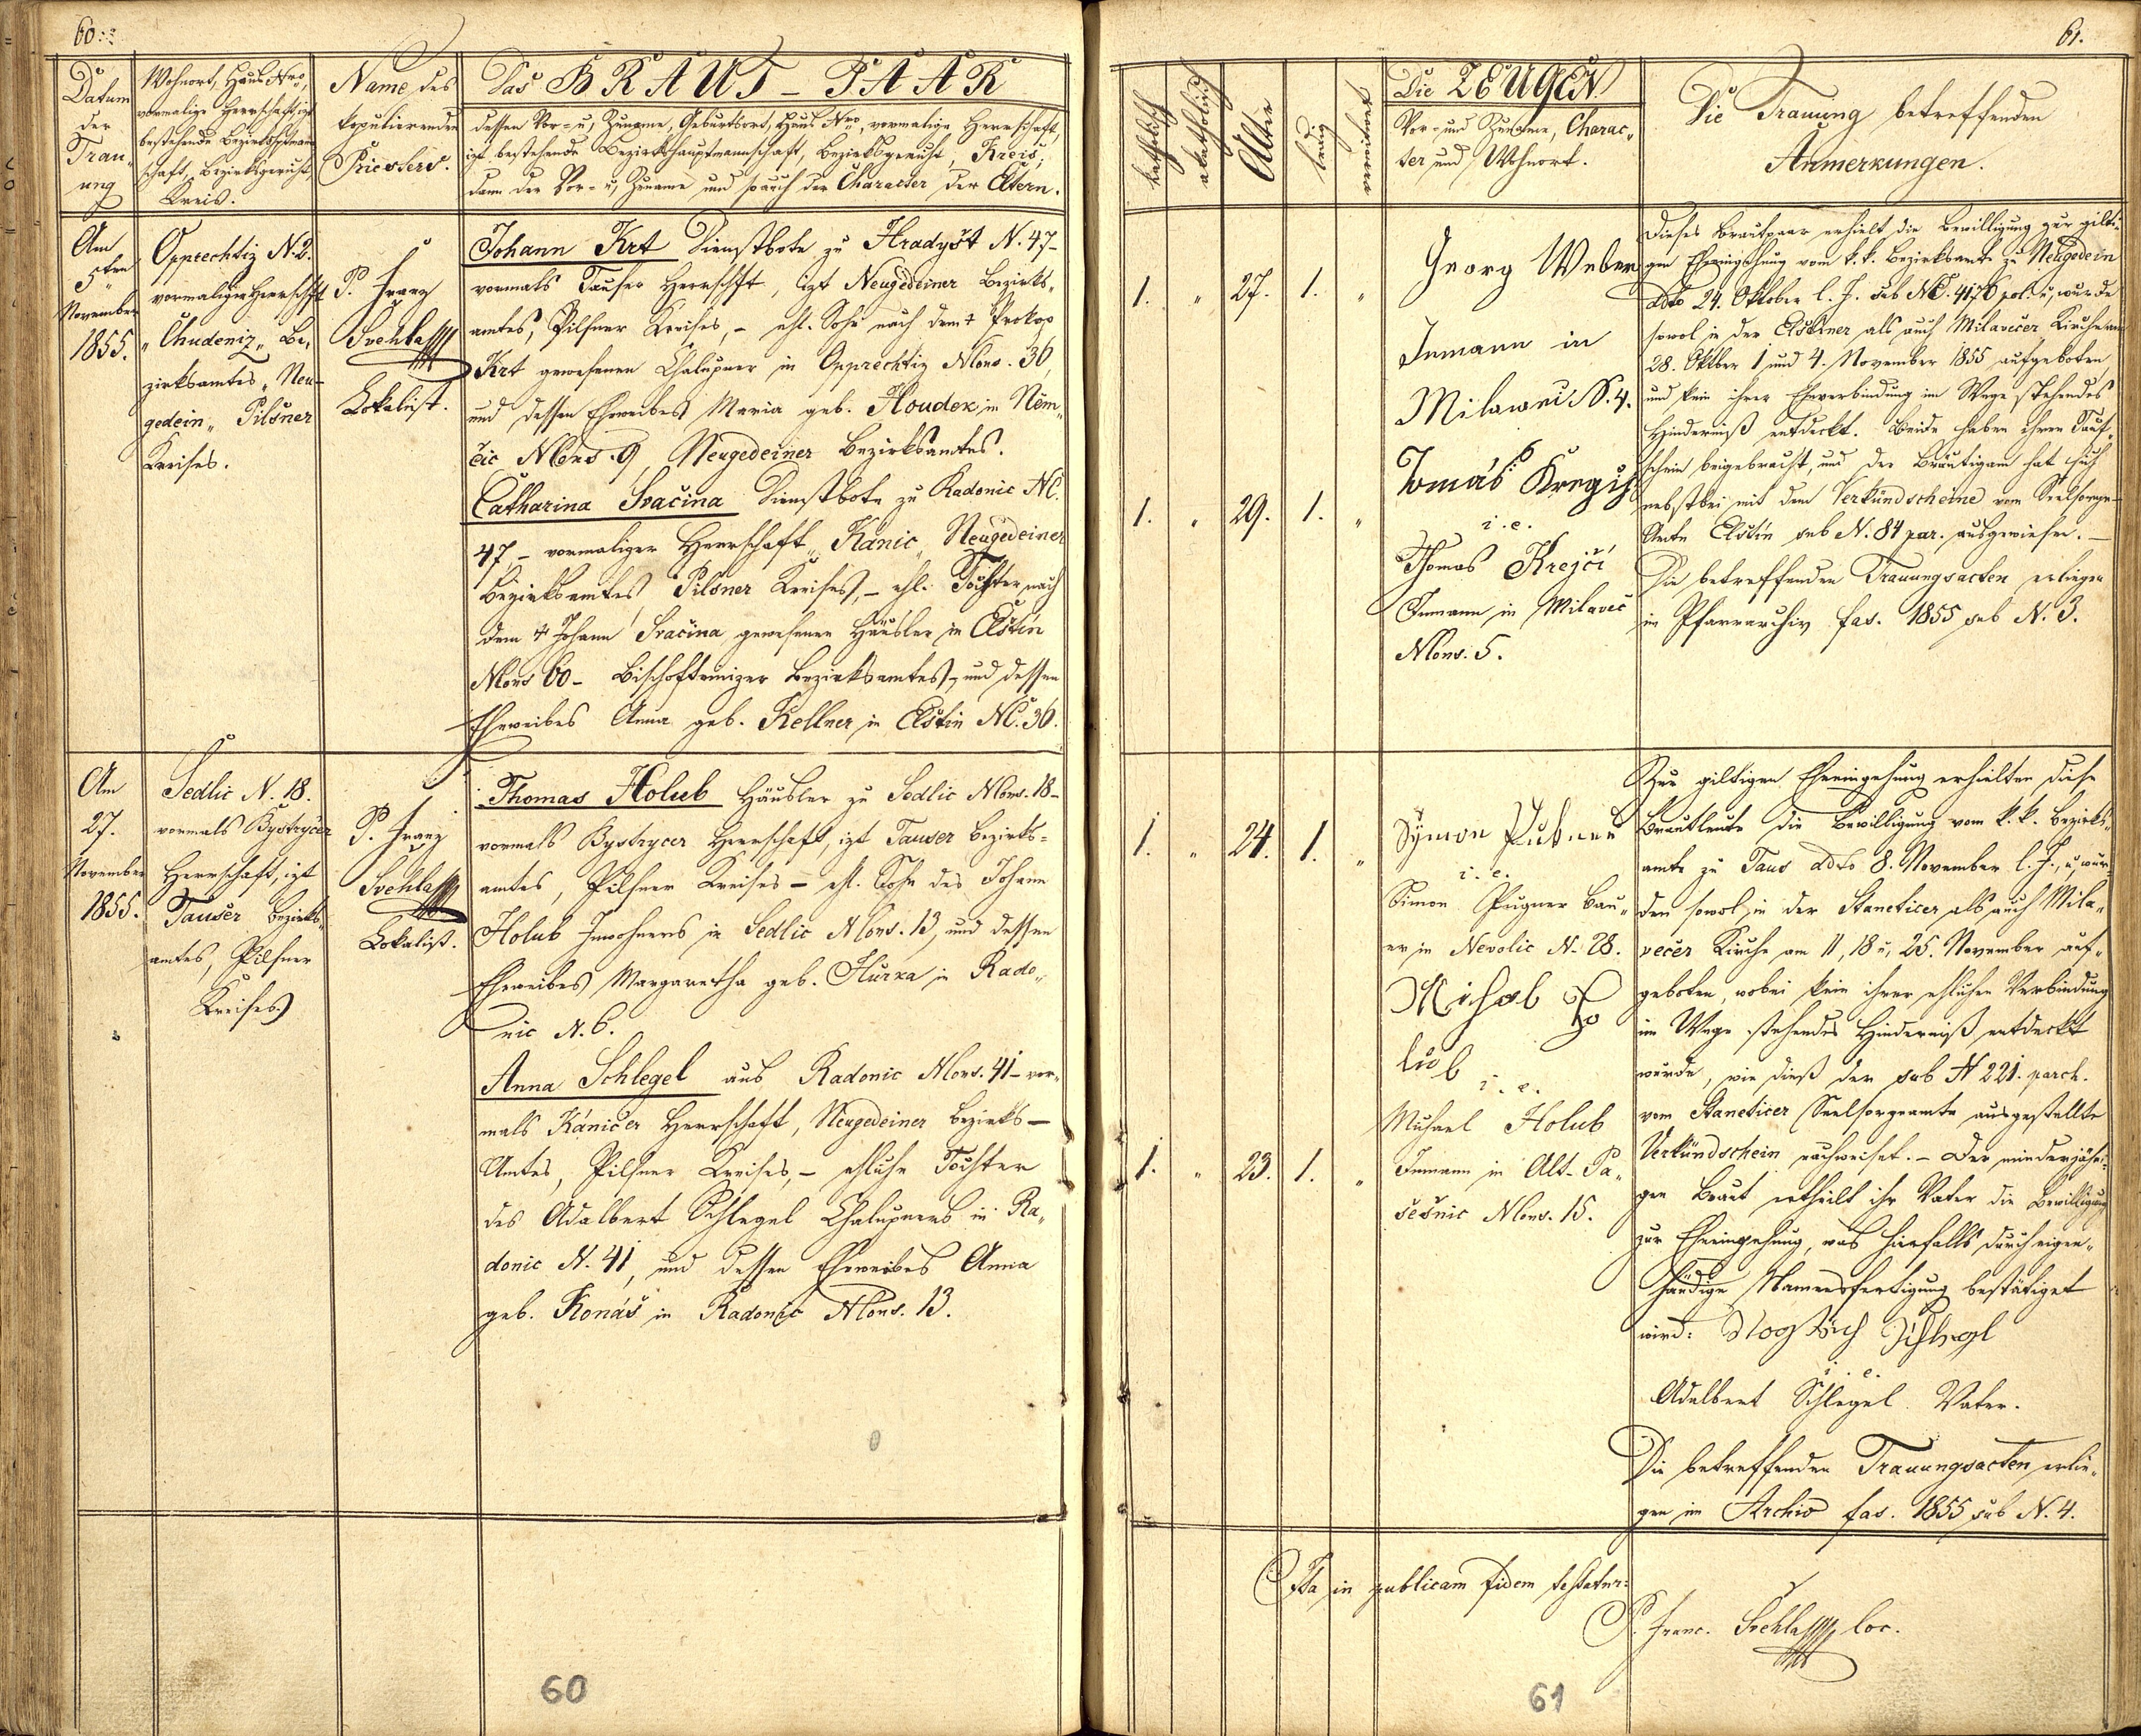 60.
Datum
der
Trau-
ung
Wohnort, Haus Nro,
vormalige Herrschaft, izt
bestehende Bezirkshptman-
schaft, Bezirksgericht,
Kreis.
Name des
kopulierenden
Priesters.
Das BRAUT-PAAR
dessen Vor- u. Zuname, Geburtsort, Haus Nro, vormalige Herrschaft,
izt bestehende Bezirkshauptmannschaft, Bezirksgericht, Kreis;
dann der Vor- u. Zuname und so auch der Character der Eltern.
Am
5ten
November
1855.
Opprechtiz N. 2.
vormaliger Herrschft
"Chudeniz" Be-
zirksamtes "Neu-
gedein" Pilsner
Kreises.
P. Franz
Svehla
Lokalist.
Johann Krt Dienstbote zu Hradyšt N. 47-
vormals Tauser Herrschft, izt Neugedeiner Bezirks-
amtes, Pilsner Kreises, - ehl. Sohn nach dem † Prokop
Krt gewesenen Chalupner in Opprechtiz NCons. 36,
und dessen Eheweibes Maria geb. Houdek in Něm-
čic NCons. 9, Neugedeiner Bezirksamtes.
Catharina Svačina Dienstbote zu Radonic NC.
47 - vormaliger Herrschaft "Kanic" Neugedeiner
Bezirksamtes Pilsner Kreises, - ehl. Tochter nach
dem † Johann Svačina gewesenen Häusler in Elštin
NCons 60 - Bischofteinizer Bezirksamtes, und dessen
Eheweibes Anna geb. Kellner in Elštin NC. 36.
Am
27.
November
1855.
Sedlic N. 18.
vormals Bystrycer
Herrschaft, izt
Tauser Bezirks-
amtes, Pilsner
Kreises
P. Franz
Svehla
Lokalist.
Thomas Holub Häusler zu Sedlic NCons. 18-
vormals Bystrycer Herrschaft, izt Tauser Bezirks-
amtes, Pilsner Kreises - ehl. Sohn des Johann
Holub Inwohners in Sedlic NCons. 13, und dessen
Eheweibes Margaretha geb. Hurka in Rado-
nic N. 6.
Anna Schlegel aus Radonic NCons. 41 - vor-
mals Kaničer Herrschaft, Neugedeiner Bezirks-
Amtes, Pilsner Kreises, - ehliche Tochter
des Adalbert Schlegel Chalupners in Ra-
donic N. 41, und dessen Eheweibes Anna
geb. Konáš in Radonic NCons. 13.
60
61.
katholisch
akatholisch
Alter
ledig
verwitwet
Die ZEUGEN
Vor- und Zuname, Charac-
ter und Wohnort.
Die Trauung betreffenden
Anmerkungen.
1. " 27. 1. "
Georg Weber
Inmann in
Milaweč N. 4.
1. " 29. 1. "
i. e.
Thomas Krejčí
Inmann in Milaveč
NCons. 5.
Dieses Brautpaar erhielt die Bewilligung zur gilti-
gen Eheeingehung vom k. k. Bezirksamte zu Neugedein
ddto 24. Oktober l. J. sub NE. 4176 pol. u. wurde
sowol in der Elštiner als auch Milavečer Kirche am
28. Oktber 1 und 4. November 1855 aufgeboten,
und kein ihrer Eheverbindung im Wege stehendes
Hinderniß entdeckt. Beide haben ihren Tauf-
schein beigebracht, und der Bräutigam hat sich
nebstbei mit dem Verkündscheine vom Seelsorge-
Amte Elštin sub N. 84 par. ausgewiesen. -
Die betreffenden Trauungsacten erliegen
in Pfarrarchiv fas. 1855 sub N. 3.
1. " 24. 1. "
Symon
i. e.
Simon Pugner Bau-
er in Nevolic N. 28.
Mihal Ho
lub
i. e.
1. " 23. 1. "
Michael Holub
Inmann in Alt-Pa-
sešnic NCons. 15.
Zur giltigen Eheeingehung erhielten diese
Brautleute die Bewilligung vom k. k. Bezirks-
amte zu Taus ddto 8. November l. J., u. wur-
den sowol in der Staneticer als auch Mila-
večer Kirche am 11, 18 u. 25. November auf-
geboten, wobei kein ihrer ehlichen Verbindung
im Wege stehendes Hinderniß entdeckt
wurde, wie dieß der sub N 221. parch.
vom Stanetizer Seelsorgeamte ausgestellte
Verkündschein nachweiset. - Der minderjähri-
gen Braut ertheilt ihr Vater die Bewilligung
zur Eheeingehung, was hierfalls durch eigen-
händige Namensfertigung bestätiget
wird:
i. e.
Adalbert Schlegel Vater.
Die betreffenden Trauungsacten erlie-
gen im Archiv fas. 1855 sub N. 4.
Ita in publicam fidem testatur:
P. Franc. Svehla loc.
61